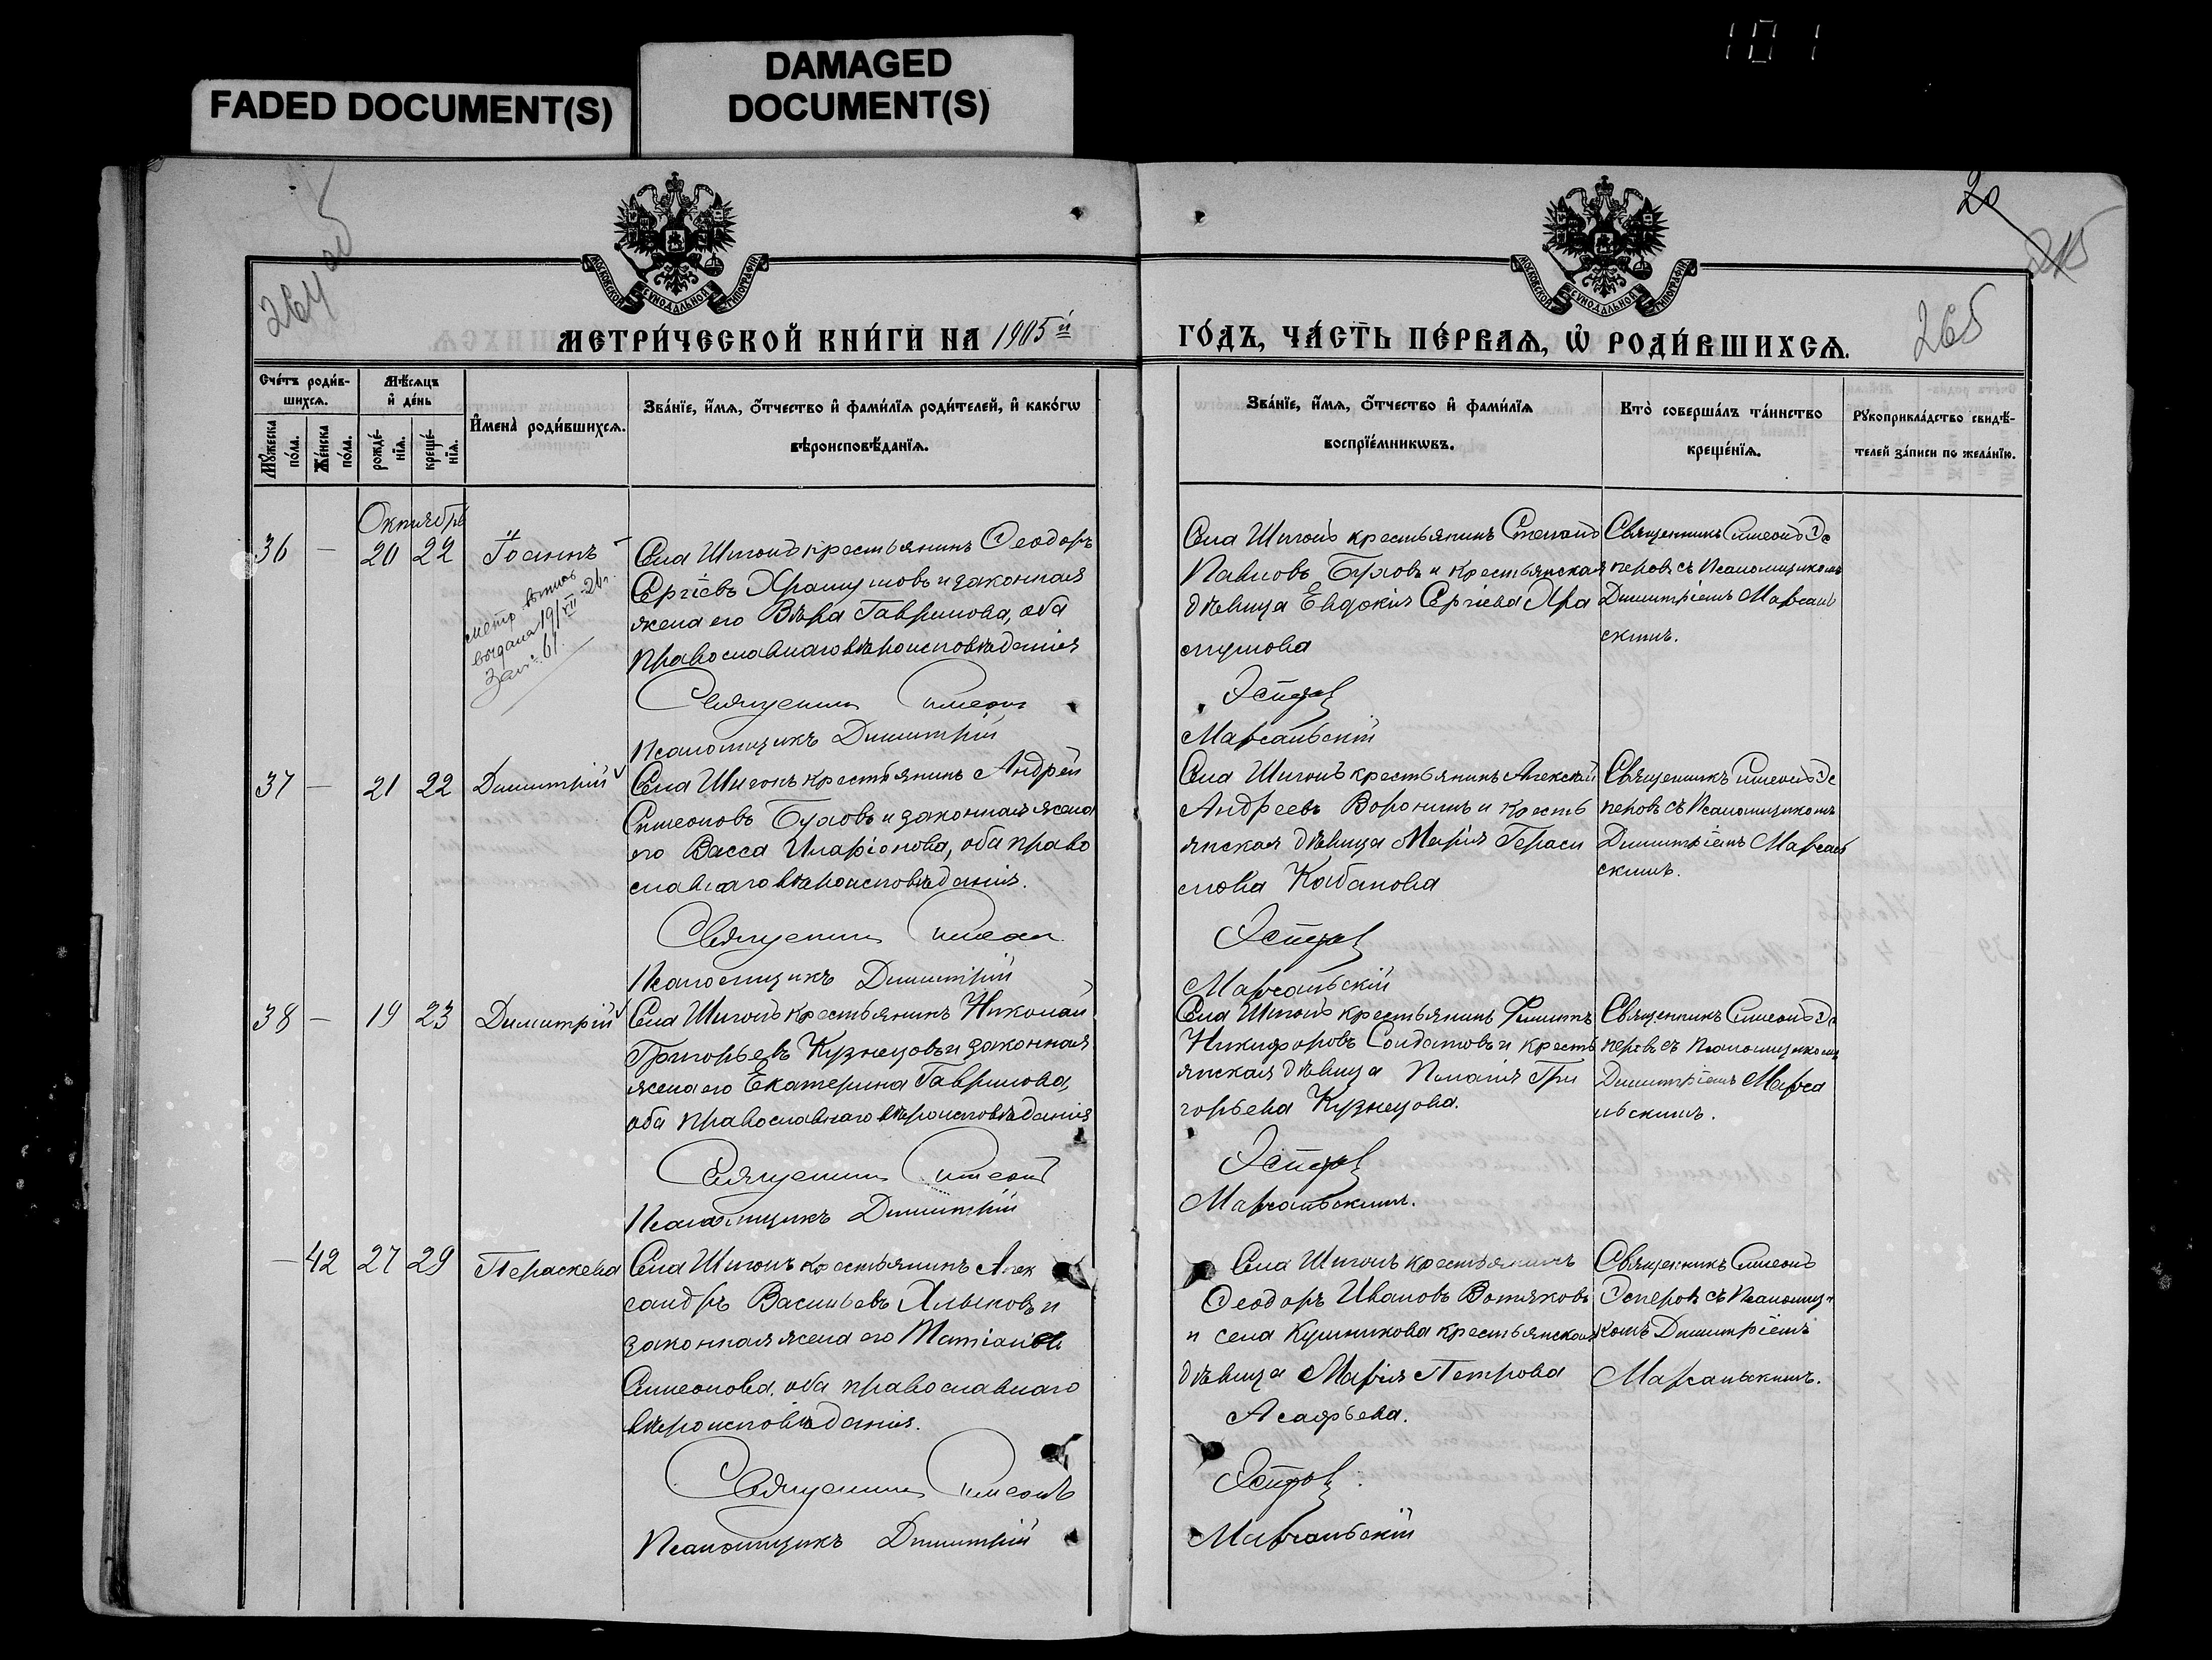 101
FADED DOCUMENT(S)
DAMAGED
DOCUMENT(S)
20
264
265
МОСКОВСКОЙ СѴНОДАЛЬНОЙ ТИПОГРАФІИ
МОСКОВСКОЙ СѴНОДАЛЬНОЙ ТИПОГРАФІИ
МЕТРИ́ЧЕСКОЙ КНИ́ГИ НА 1905й
ГО́ДЪ, ЧА́СТЬ ПЕ́РВАѦ, Ѡ҆ РОДИ́ВШИХСѦ.
Сче́тъ роди́в-
шихсѧ.
Мѣ́сѧцъ
и҆ де́нь
Мꙋ́жеска
по́ла.
Же́нска
по́ла.
рожде́-
нїѧ.
креще́-
нїѧ.
И҆мена̀ роди́вшихсѧ.
Зва́нїе, и҆́мѧ, ѻ҆́тчество и҆ фами́лїѧ роди́телей, и҆ како́гѡ
вѣроисповѣ́данїѧ.
Зва́нїе, и҆́мѧ, ѻ҆́тчество и҆ фами́лїѧ
воспрїе́мникѡвъ.
Кто̀ соверша́лъ та́инство
креще́нїѧ.
Рꙋкоприкла́дство свидѣ́-
телей за́писи по жела́нїю.
Октябрь
36 — 20 22 Іоаннъ
метр. выпись
выдана 19/XII-26 г.
за № 61.
Села Шигонъ крестьянинъ Ѳеодоръ
Сергіевъ Храмушовъ и законная
жена его Вѣра Гаврилова, оба
православнаго вѣроисповѣданія
Священникъ Симеонъ
Псаломщикъ Димитрій
Села Шигонъ крестьянинъ Степанъ
Павловъ Буховъ и крестьянская
дѣвица Евдокія Сергіева Хра
мушова
Эсперовъ
Марсальскій
Священникъ Симеонъ Эс
перовъ съ Псаломщикомъ
Димитріемъ Марсаль
скимъ.
37 — 21 22 Димитрій
Села Шигонъ крестьянинъ Андрей
Симеоновъ Буховъ и законная жена
его Васса Иларіонова, оба право
славнаго вѣроисповѣданія.
Священникъ Симеонъ
Псаломщикъ Димитрій
Села Шигонъ крестьянинъ Алексѣй
Андреевъ Воронинъ и кресть
янская дѣвица Марія Гераси
мова Кабанова
Эсперовъ
Марсальскій
Священникъ Симеонъ Эс
перовъ съ Псаломщикомъ
Димитріемъ Марсаль
скимъ.
38 — 19 23 Димитрій
Села Шигонъ крестьянинъ Николай
Григорьевъ Кузнецовъ и законная
жена его Екатерина Гаврилова,
оба православнаго вѣроисповѣданія
Священникъ Симеонъ
Псаломщикъ Димитрій
Села Шигонъ крестьянинъ Филиппъ
Никифоровъ Солдатовъ и кресть
янская дѣвица Пелагія Гри
горьева Кузнецова.
Эсперовъ
Марсальскимъ.
Священникъ Симеонъ Эс
перовъ съ Псаломщикомъ
Димитріемъ Марса
льскимъ.
— 42 27 29 Параскева
Села Шигонъ крестьянинъ Алек
сандръ Васильевъ Хлыновъ и
законная жена его Татіана
Симеонова, оба православнаго
вѣроисповѣданія.
Священникъ Симеонъ
Псаломщикъ Димитрій
Села Шигонъ крестьянинъ
Ѳеодоръ Ивановъ Вотяковъ
и села Кушникова крестьянская
дѣвица Марія Петрова
Асафьева.
Эсперовъ.
Марсальскій
Священникъ Симеонъ
Эсперовъ съ Псаломщи
комъ Димитріемъ
Марсальскимъ.